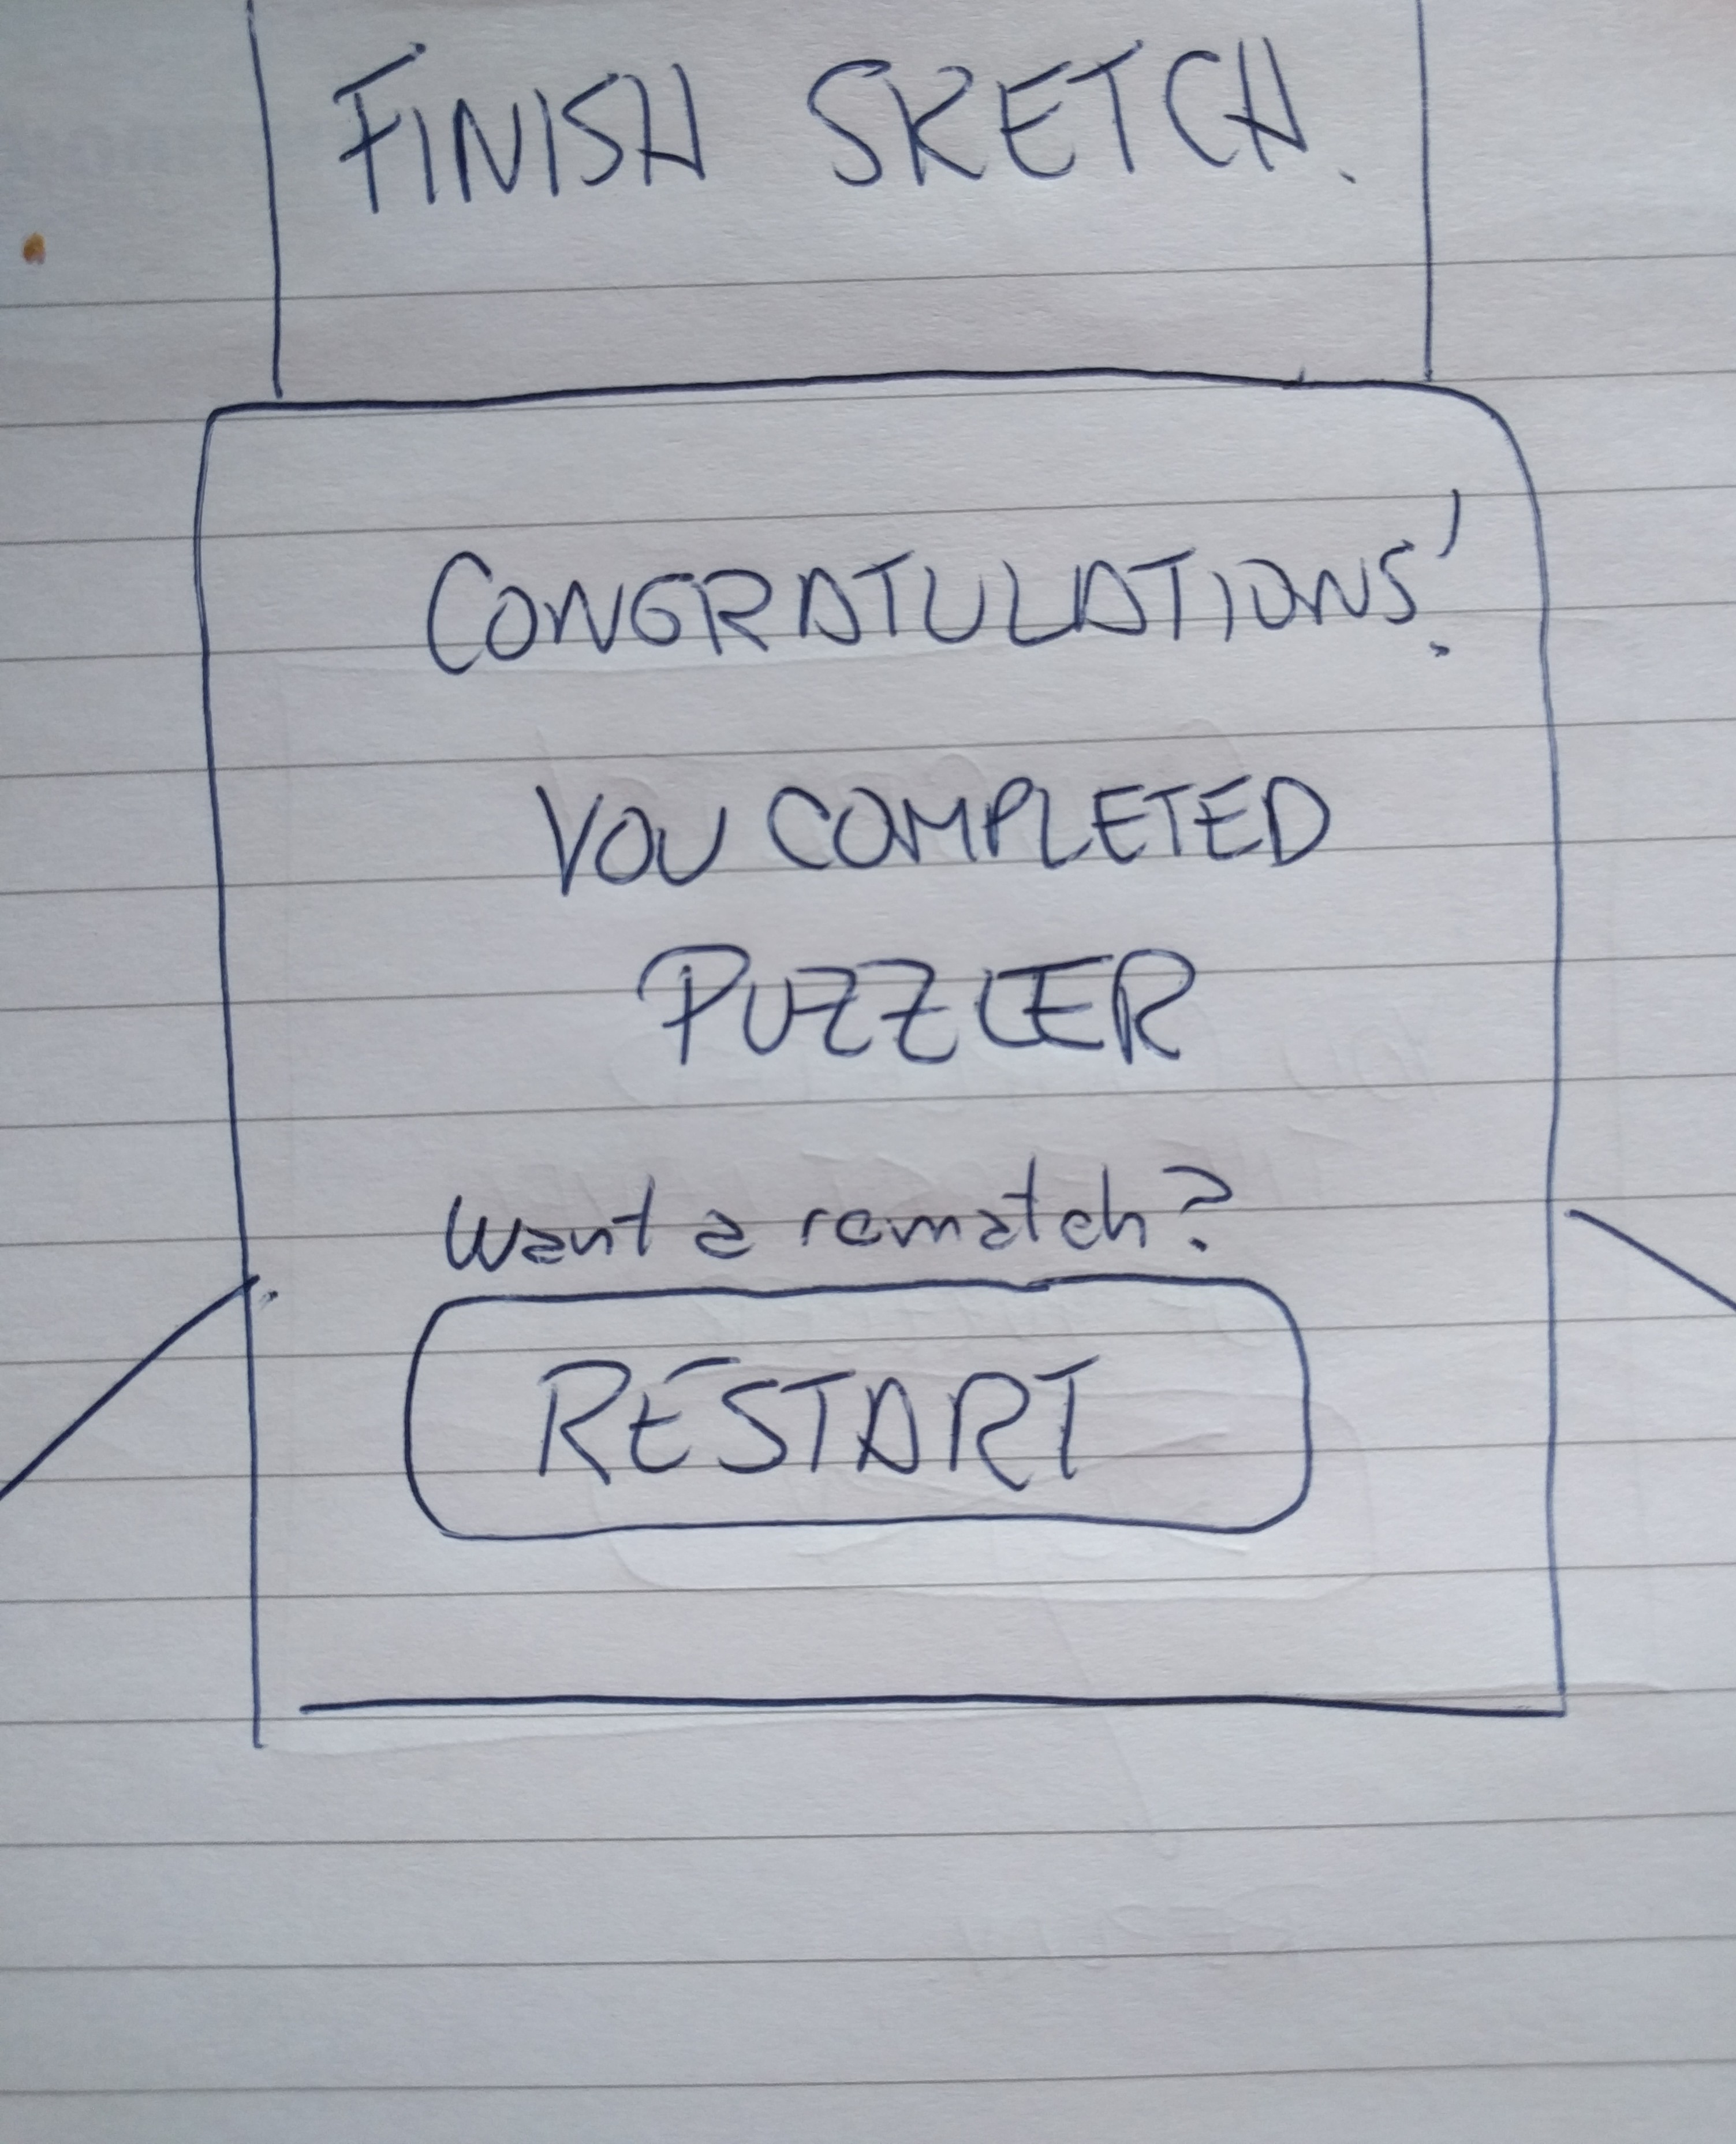 FINISH SKETCH.
CONGRATULATIONS!
YOU COMPLETED
PUZZLER
Want a rematch?
RESTART